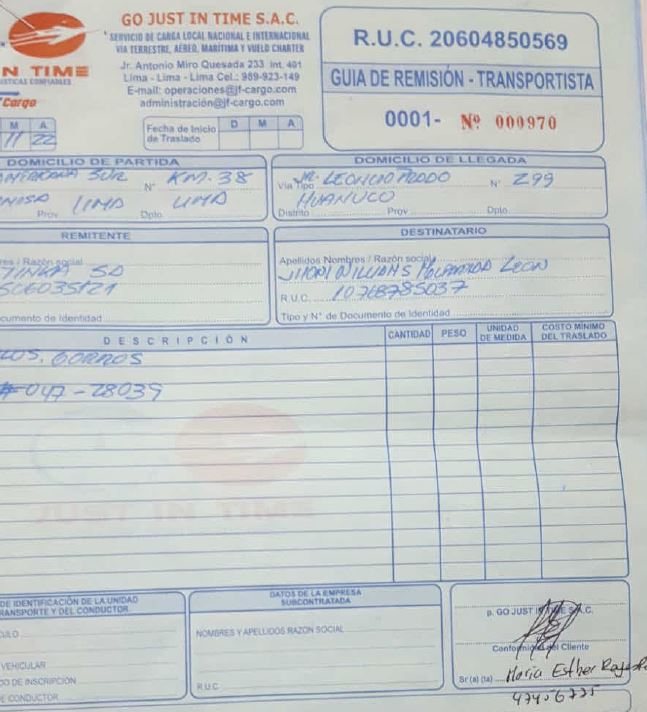 GO JUST IN TIME S.A.C.
SERVICIO DE CARGA LOCAL NACIONAL E INTERNACIONAL
VIA TERRESTRE, AÉREO, MARÍTIMA Y VUELO CHARTER
Jr. Antonio Miro Quesada 233 Int. 401
Lima - Lima - Lima Cel.: 989-923-149
E-mail: operaciones@jf-cargo.com
administración@jf-cargo.com
N TIME
Cargo
R.U.C. 20604850569
GUIA DE REMISIÓN - TRANSPORTISTA
0001- Nº 000970
M A
11 22
Fecha de Inicio de Traslado D M A
DOMICILIO DE PARTIDA
SUR N° KM. 38
Prov LIMA Dpto LIMA
DOMICILIO DE LLEGADA
Via Tipo JR. LEONCIO PRADO N° 299
HUANUCO
Distrito Prov Dpto
REMITENTE
res / Razón social
SA
ocumento de Identidad
DESTINATARIO
Apellidos Nombres / Razón social
JHONI WILLIAMS LEON
R.U.C. 10768785037
Tipo y N° de Documento de Identidad
DESCRIPCIÓN CANTIDAD PESO UNIDAD DE MEDIDA COSTO MÍNIMO DEL TRASLADO
GORROS
#047-28039
DE IDENTIFICACIÓN DE LA UNIDAD
TRANSPORTE Y DEL CONDUCTOR
CULO
VEHICULAR
DO DE INSCRIPCIÓN
DE CONDUCTOR
DATOS DE LA EMPRESA
SUBCONTRATADA
NOMBRES Y APELLIDOS RAZON SOCIAL
R.U.C
p. GO JUST IN TIME S.A.C.
Conformidad del Cliente
Sr (a) (ta) Maria Esther